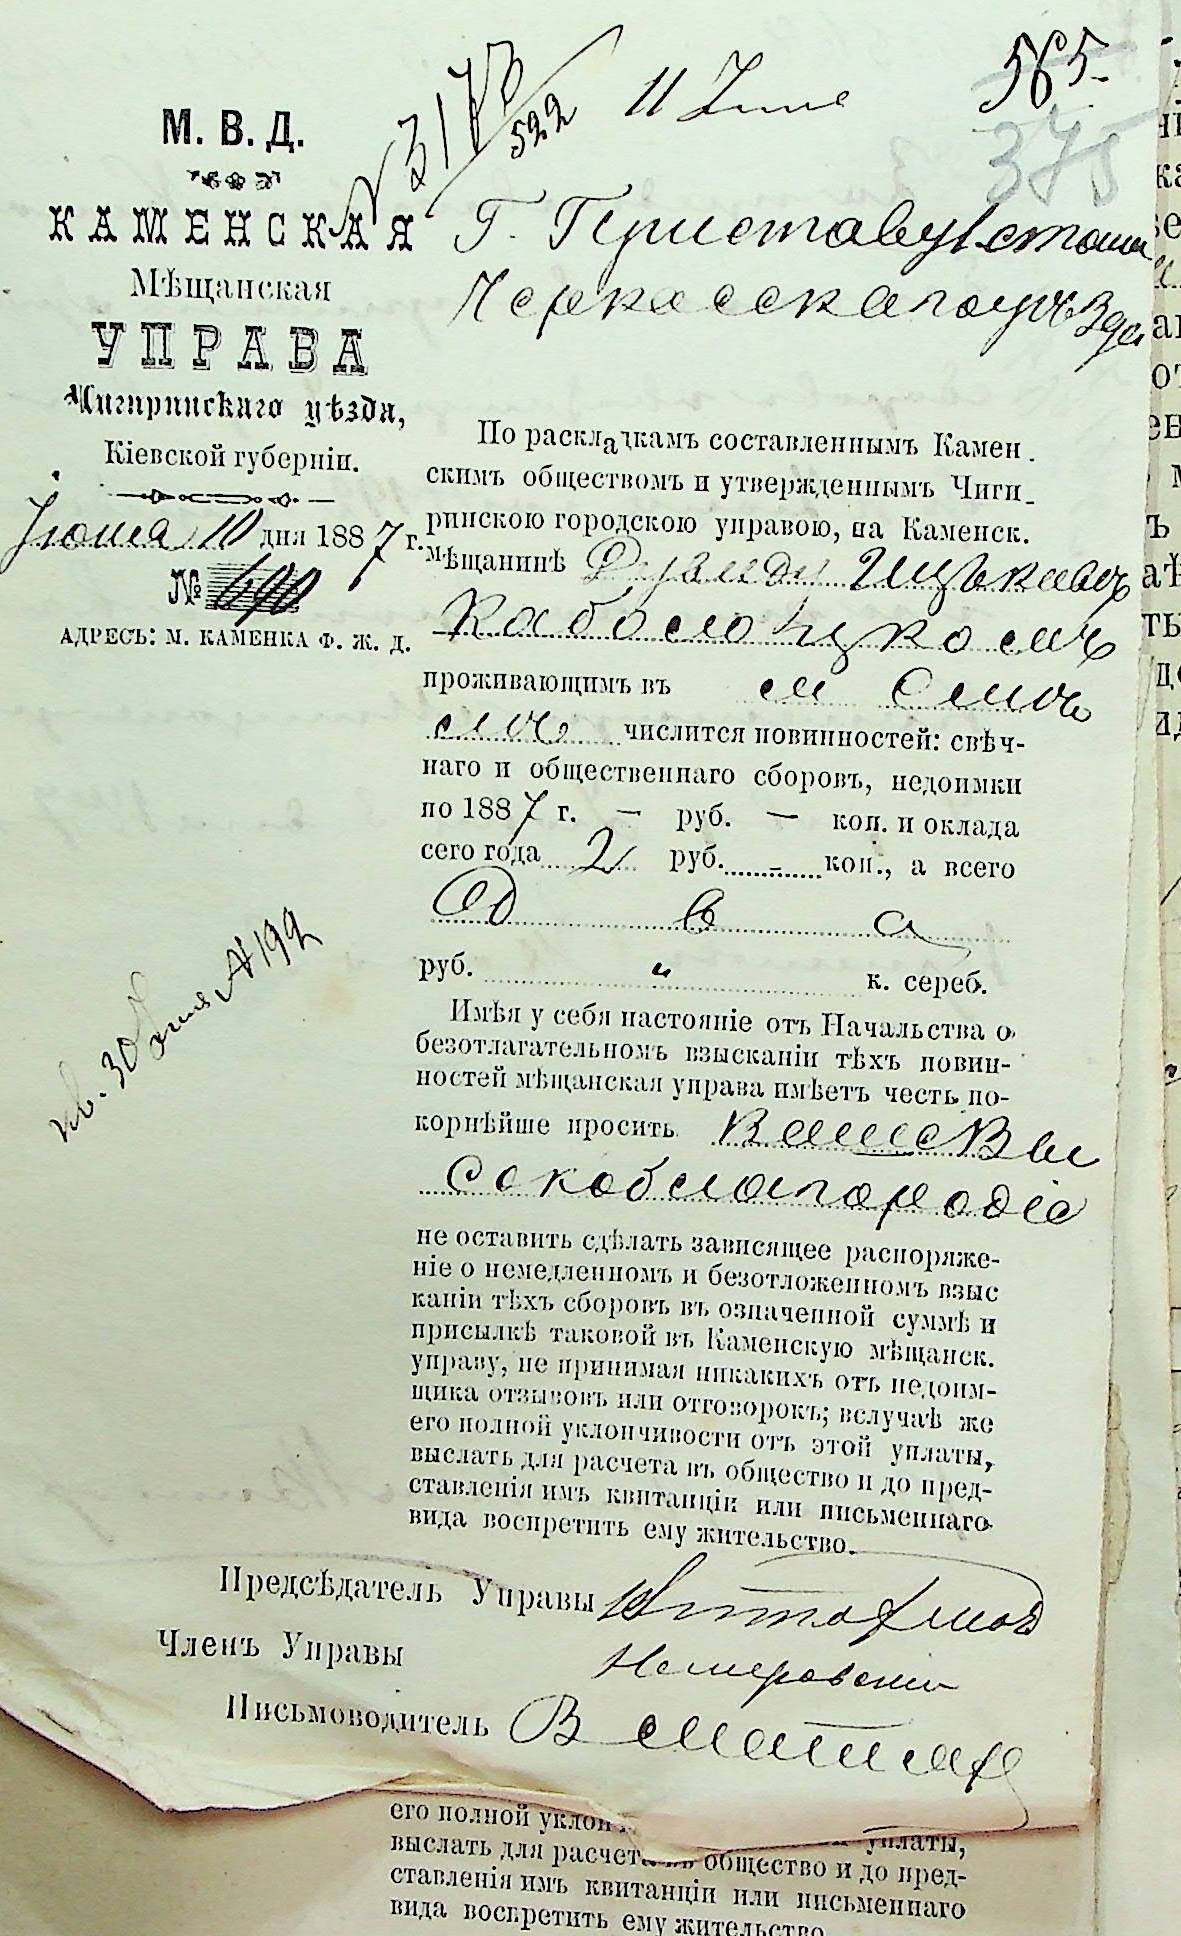 565.
375
№ 3173/522
11 Іюня
М. В. Д.
КАМЕНСКАЯ
Мѣщанская
УПРАВА
Чигиринскаго уѣзда,
Кіевской губерніи.
Іюня 10 дня 1887 г.
№ 690
АДРЕСЪ: М. КАМЕНКА Ф. Ж. д.
Г. Приставу 1 стана
Черкасскаго уѣзда
По раскладкамъ составленнымъ Камен
скимъ обществомъ и утвержденнымъ Чиги-
ринскою городскою управою, на Каменск.
мѣщанинѣ
проживающимъ въ м Смѣ
лѣ числится повинностей: свѣч-
наго и общественнаго сборовъ, недоимки
по 1887 г. — руб. — коп. и оклада
сего года 2 руб. - коп., а всего
Два
руб. " к. сереб.
Имѣя у себя настояніе отъ Начальства о
безотлагательномъ взысканіи тѣхъ повин-
ностей мѣщанская управа имѣетъ честь по-
корнѣйше просить Ваше Вы
сокоблагородіе
не оставить сдѣлать зависящее распоряже-
ніе о немедленномъ и безотложенномъ взыс
каніи тѣхъ сборовъ въ означенной суммѣ и
присылкѣ таковой въ Каменскую мѣщанск.
управу, не принимая никакихъ отъ недоим-
щика отзывовъ или отговорокъ; вслучаѣ же
его полной уклончивости отъ этой уплаты,
выслать для расчета въ общество и до пред-
ставленія имъ квитанціи или письменнаго
вида воспретить ему жительство.
кв. 30 Іюня № 192
Предсѣдатель Управы
Членъ Управы Немировскій
Письмоводитель В
его полной уклон уплаты,
выслать для расчета въ общество и до пред-
ставленія имъ квитанціи или письменнаго
вида воспретить ему жительство